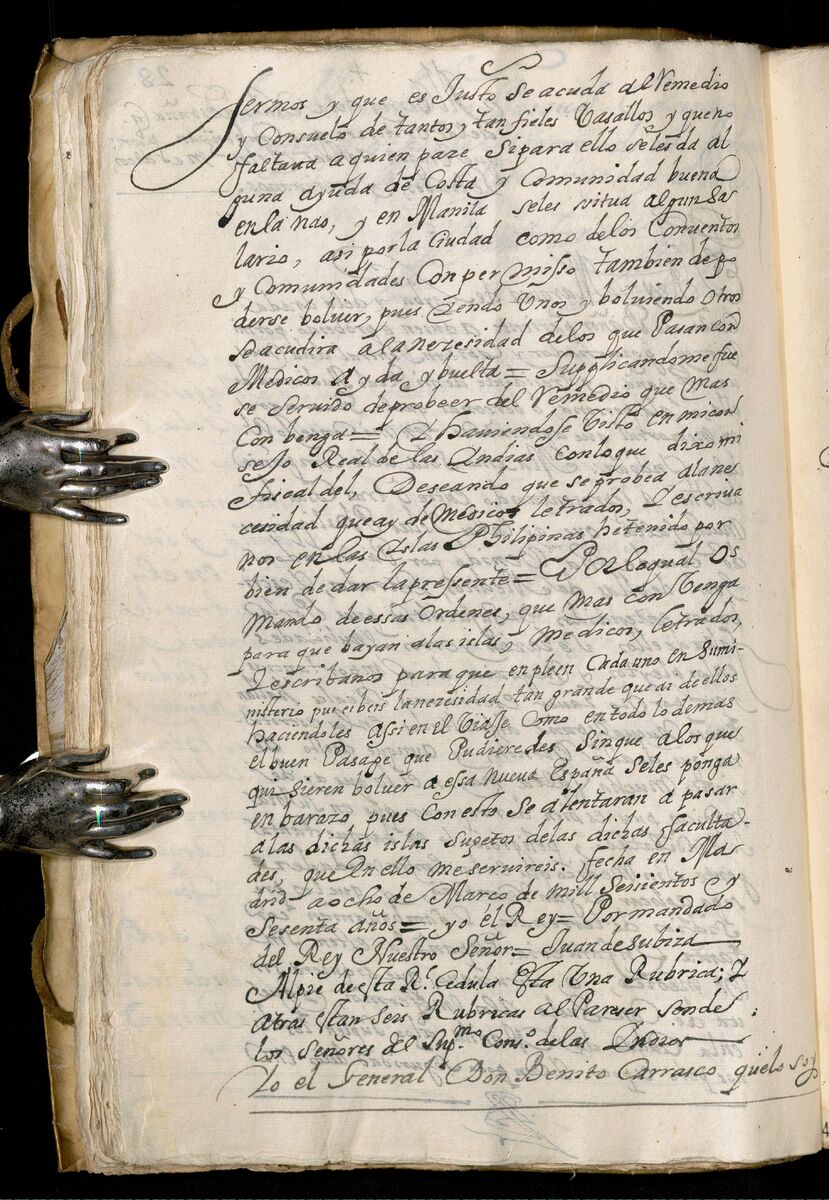 fermos y que es Justo Se acuda al Remedio
y Consuelo de tantos y tan fieles Vasallos y que no
faltara a quien pase Si para ello Seles da al
guna ayuda de Costa y Comunidad buena
en la nao, y en Manila seles situa algun Sa
lario, asi por la Ciudad como de los Conventos
y Comunidades Con permisso tambien de po
derse bolver, pues Yendo Unos y bolviendo Otros
Se acudira a la nezesidad de los que Pasan con
Medicos A yda y buelta = Supplicandome fue
se Servido de probeer del Remedio que mas
Con benga = Y haviendose Visto en mi con
sejo Real de las Yndias con lo que dixo mi
fiscal del, Deseando que se probea a la nes
cesidad que ay de Medicos letrados, Y escriva
nos en las Yslas Philipinas he tenido por
bien de dar la pressente = Por la qual Os
Mando de essas Ordenes, que mas con Venga
para que bayan a las islas, Medicos, letrados,
Y escribanos para que en pleen Cada uno en Su mi-
nisterio pues beis la nezesidad tan grande que ai de ellos
haciendoles Assi en el Viage Como en todo lo demas
el buen Pasage que Pudieredes Sin que a los que
qui Sieren bolver a essa nueva España Seles ponga
en barazo, pues Con esto Se alentaran a pasar
a las dichas islas Sugetos de las dichas faculta-
des, que En ello me Servireis. fecha en Ma
drid a ocho de Março de mill Seisientos y
Sesenta años = yo el Rey = Por mandado
del Rey Nuestro Señor = Juan de subiza
Al pie de esta Rl. Cedula Esta Una Rubrica; Y
atras estan Seis Rubricas al Pareser son de
los Señores del Supmo. Conso. de las Yndias
Yo el General Don Benito Carrasco quelo soy